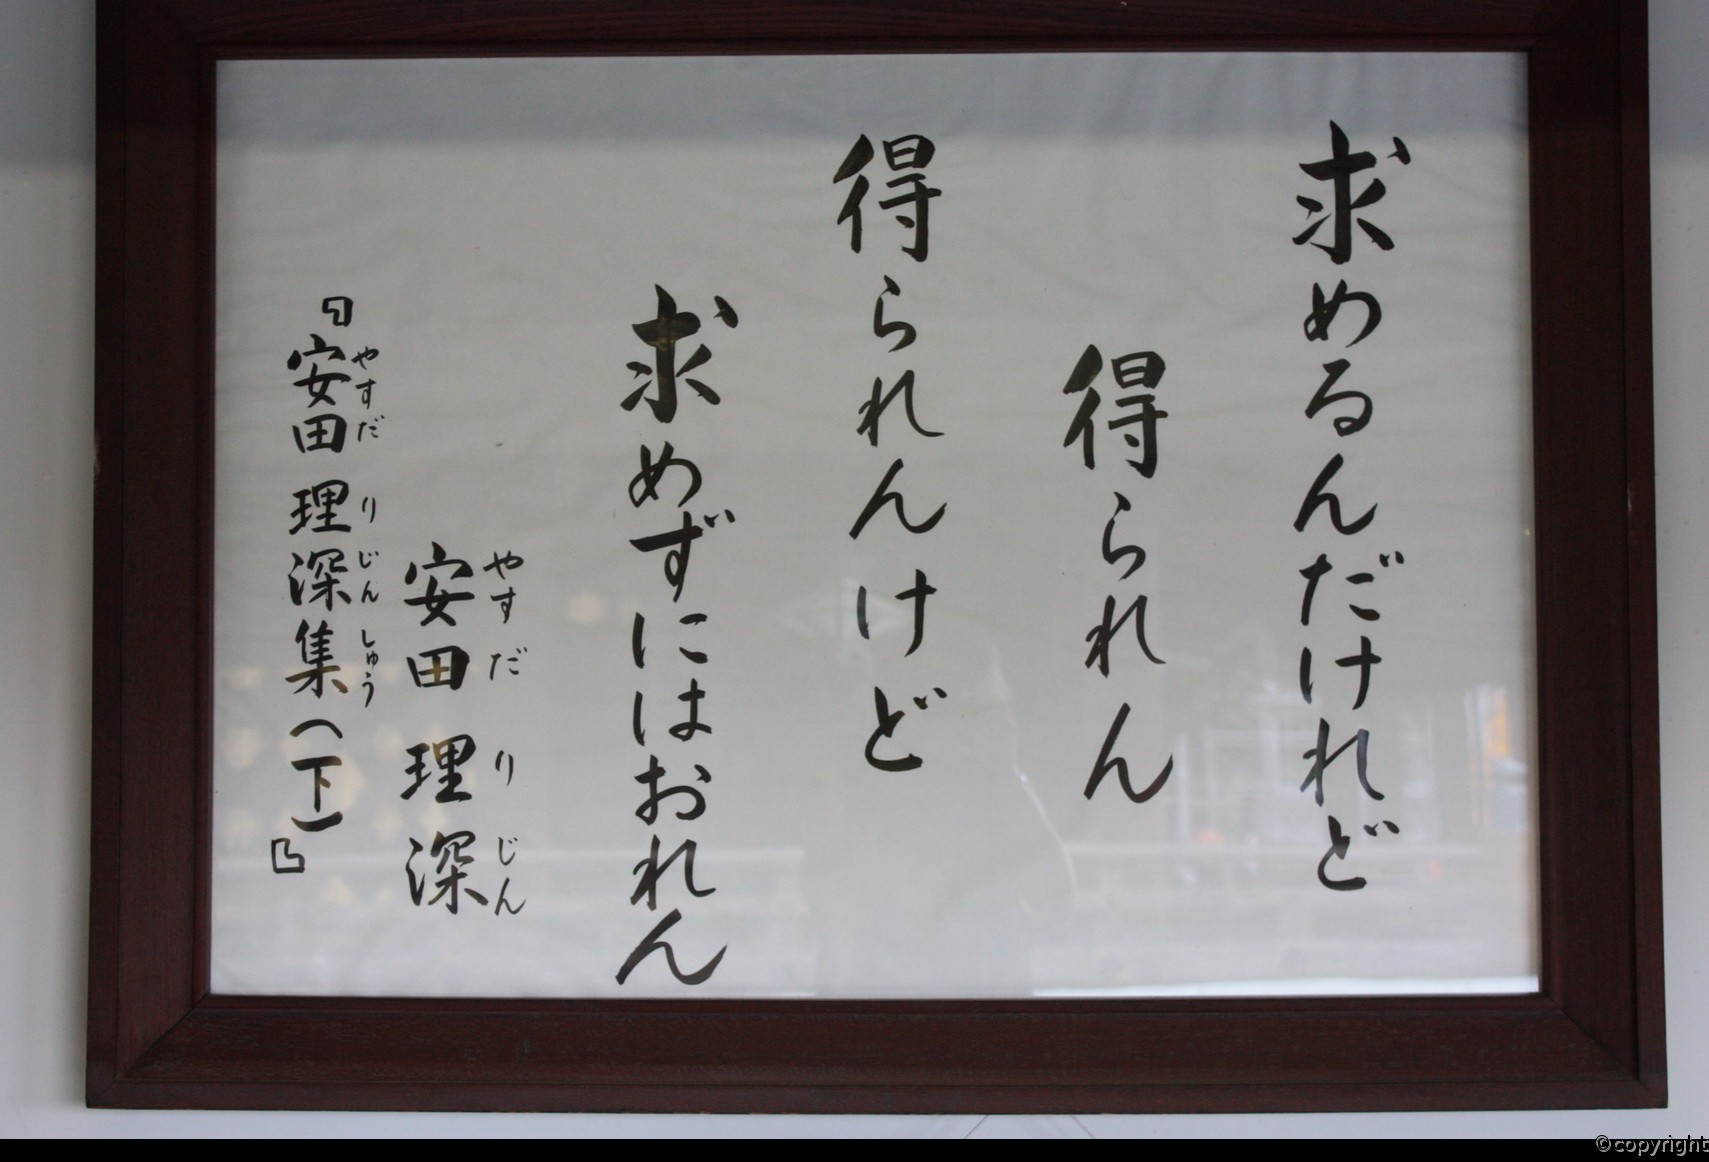 求めるんだけれど
得られん
得られんけど
求めずにはおれん
安田理深
やすだりじん
『安田理深集(下)』
やすだりじんしゅう
©copyright